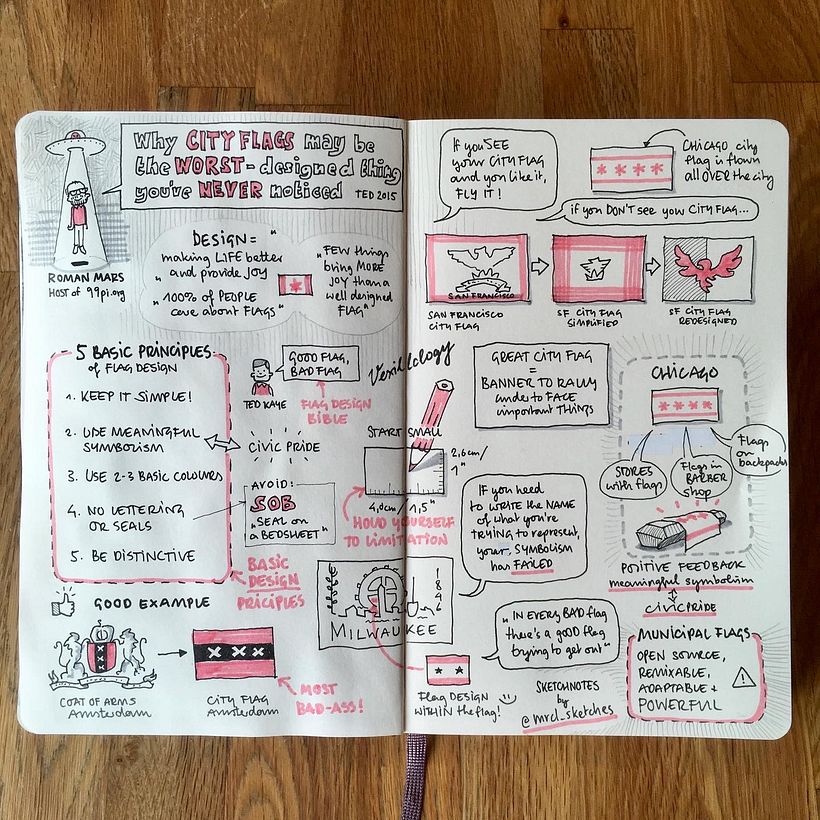 Why CITY FLAGS may be
the WORST-designed thing
you've NEVER noticed TED 2015
ROMAN MARS
HOST of 99pi.org
DESIGN =
making LIFE better
and provide JOY
"100% of PEOPLE
care about FLAGS"
"FEW things
bring MORE
JOY than a
well designed
FLAG"
5 BASIC PRINCIPLES
of FLAG DESIGN
1. KEEP IT SIMPLE!
2. USE MEANINGFUL
SYMBOLISM
3. USE 2-3 BASIC COLOURS
4. NO LETTERING
OR SEALS
5. BE DISTINCTIVE
BASIC
DESIGN
PRICIPLES
GOOD FLAG,
BAD FLAG
TED KAYE
FLAG DESIGN
BIBLE
CIVIC PRIDE
AVOID:
SOB
"SEAL on
a BEDSHEET"
GOOD EXAMPLE
COAT OF ARMS
Amsterdam
CITY FLAG
Amsterdam
MOST
BAD-ASS!
Vexillology
START SMALL
2,6cm/
1"
4,0cm/1,5"
HOLD YOURSELF
TO LIMITATION
1846
MILWAUKEE
Flag DESIGN
WITHIN the flag!
If you SEE
your CITY FLAG
and you like it,
FLY IT!
CHICAGO city
flag is flown
all OVER the city
if you DON'T see your CITY FLAG...
SAN FRANCISCO
SAN FRANCISCO
CITY FLAG
SF CITY FLAG
SIMPLIFIED
SF CITY FLAG
REDESIGNED
GREAT CITY FLAG
=
BANNER TO RALLY
under to FACE
important THINGS
CHICAGO
STORES
with flags
Flags in
BARBER
shop
Flags
on
backpacks
POSITIVE FEEDBACK
meaningful symbolism
CIVIC PRIDE
IF you need
to WRITE the NAME
of what you're
TRYING to represent,
your SYMBOLISM
has FAILED
"IN EVERY BAD flag
there's a GOOD flag
trying to get out"
SKETCHNOTES
by
@mrcl_sketches
MUNICIPAL FLAGS
OPEN SOURCE,
REMIXABLE,
ADAPTABLE +
POWERFUL